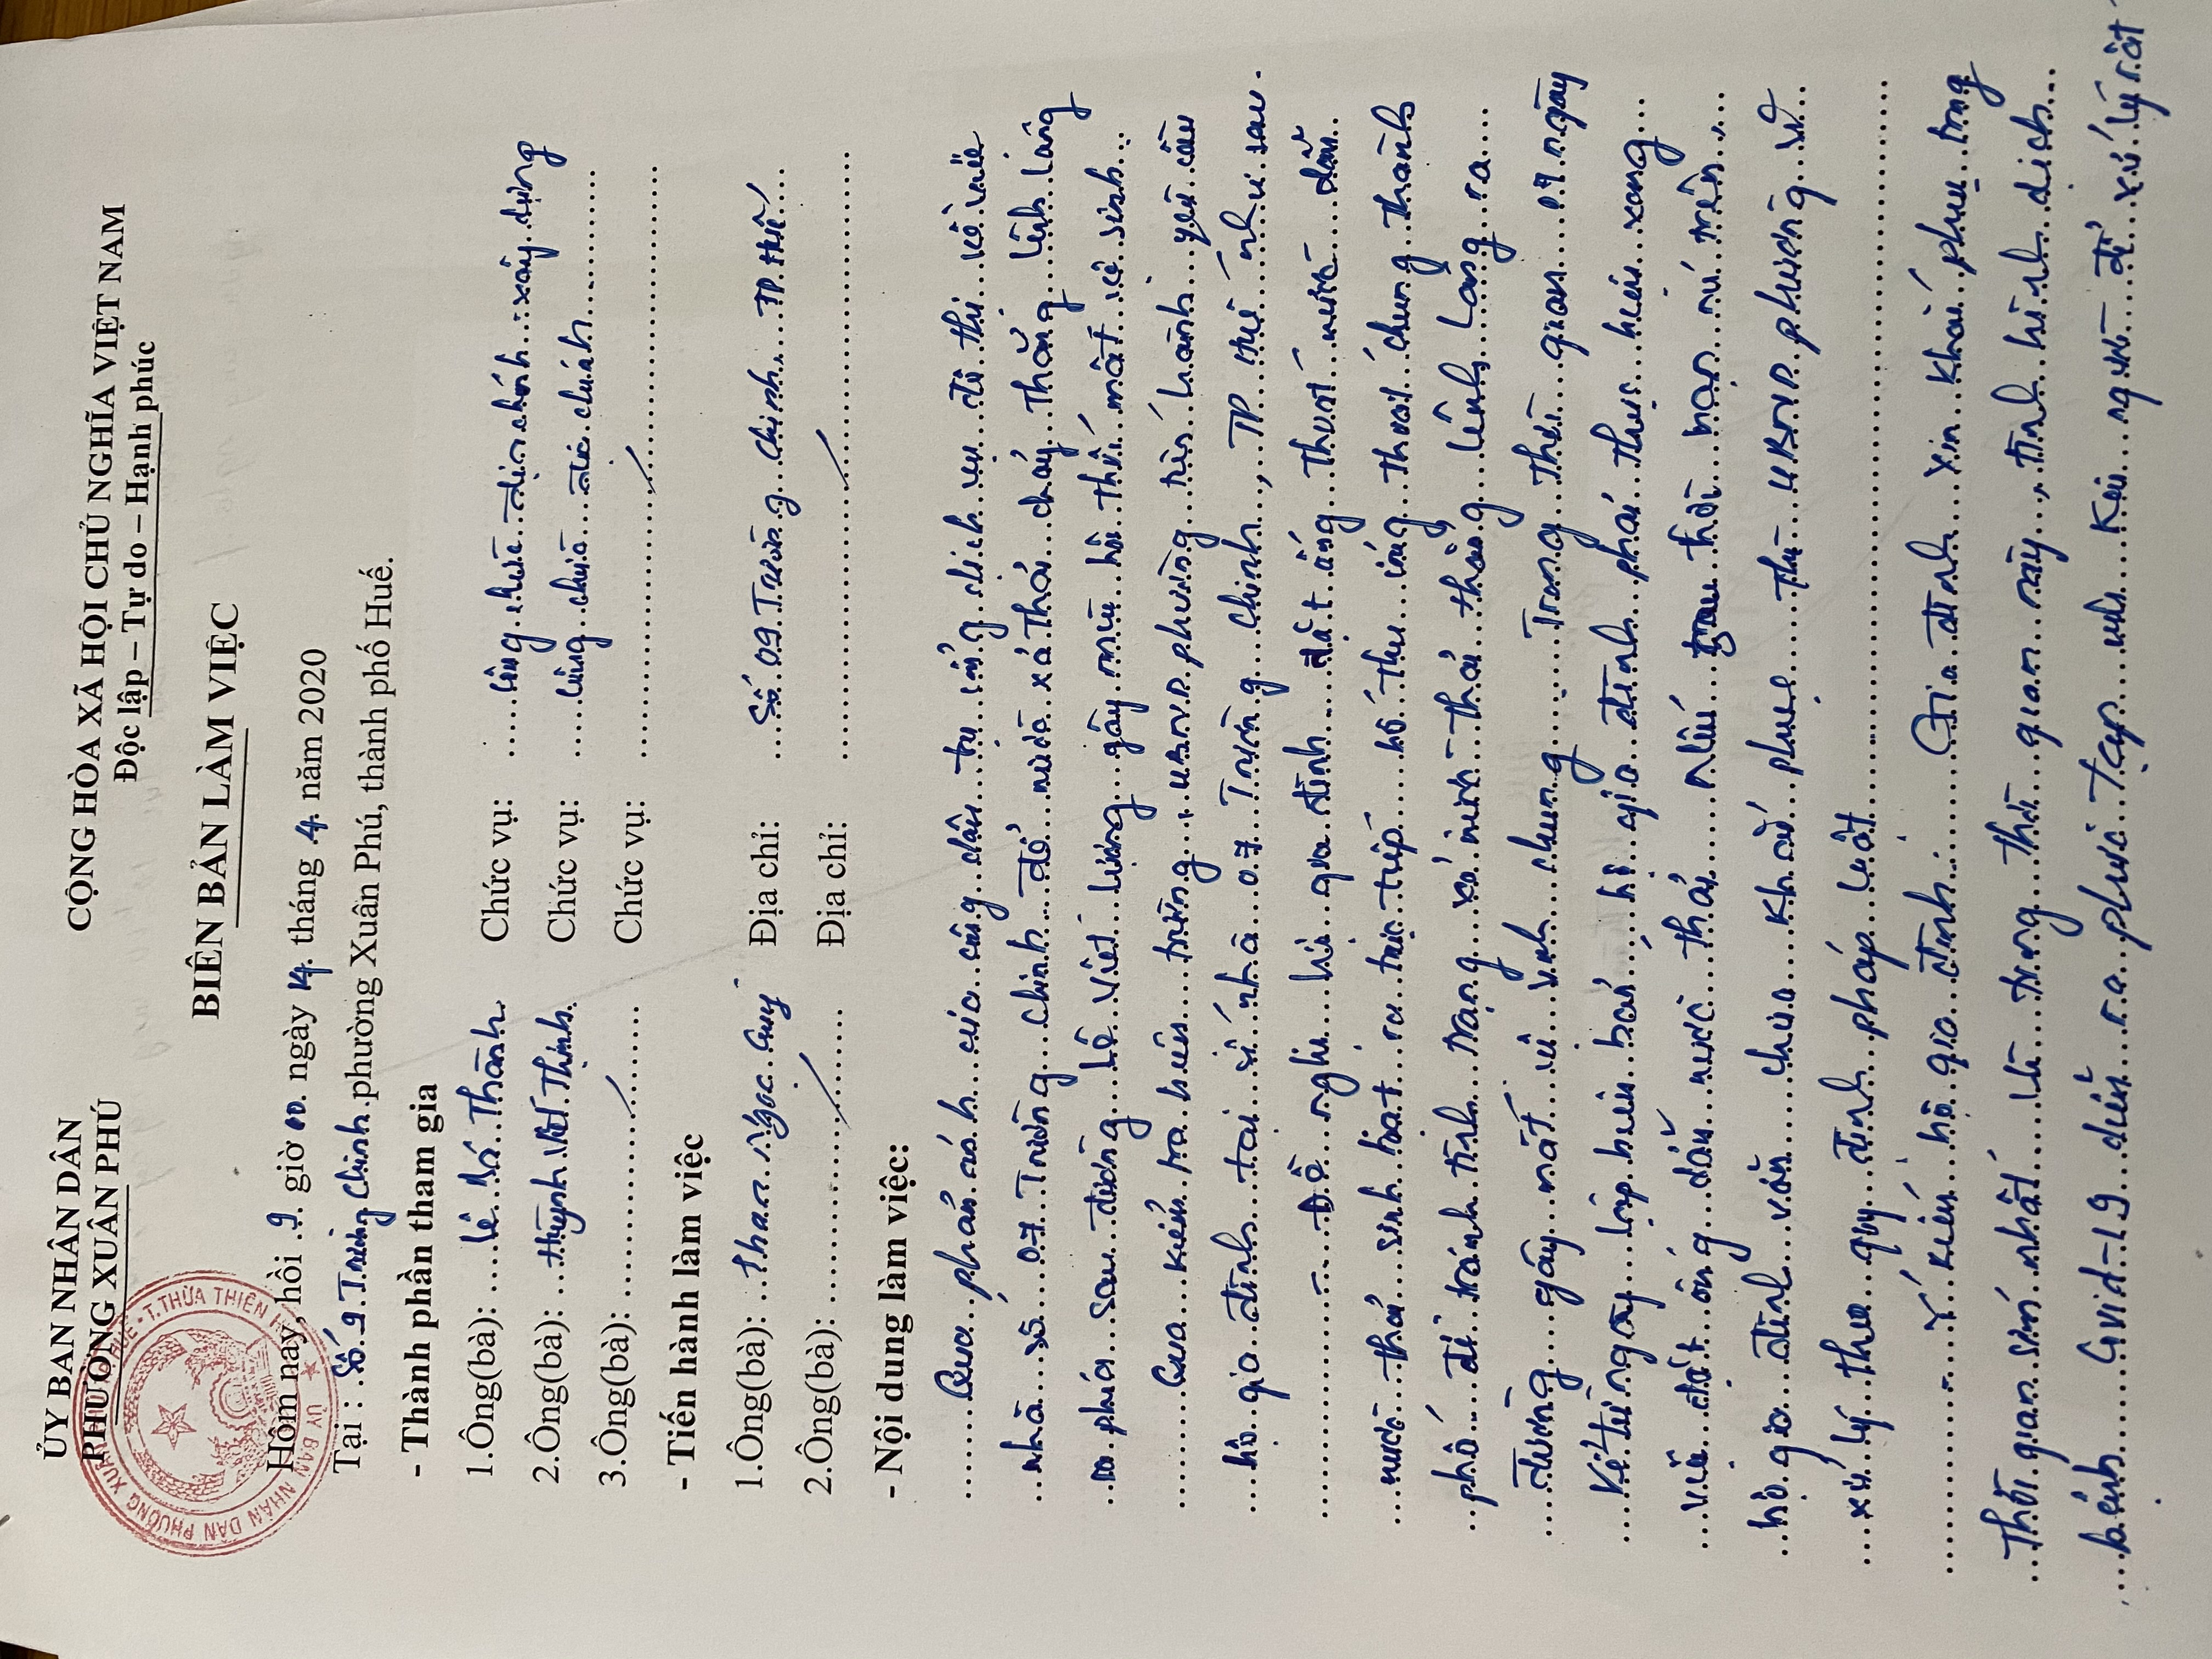 ỦY BAN NHÂN DÂN
PHƯỜNG XUÂN PHÚ
CỘNG HÒA XÃ HỘI CHỦ NGHĨA VIỆT NAM
Độc lập – Tự do – Hạnh phúc
BIÊN BẢN LÀM VIỆC
Hôm nay, hồi 9 giờ 00 ngày 14 tháng 4 năm 2020
Tại : Số 9 Trường Chinh phường Xuân Phú, thành phố Huế.
- Thành phần tham gia
1.Ông(bà): Lê Bá Thành Chức vụ: Công chức địa chính - xây dựng
2.Ông(bà): Huỳnh Viết Thịnh Chức vụ: Công chức địa chính
3.Ông(bà): Chức vụ:
- Tiến hành làm việc
1.Ông(bà): Phan Ngọc Quý Địa chỉ: Số 09 Trường Chinh, TP Huế
2.Ông(bà): Địa chỉ:
- Nội dung làm việc:
Qua phản ánh của công dân trên cổng dịch vụ đô thị về việc
nhà số 07 Trường Chinh để nước xả thải chảy thẳng lênh láng
ra phía sau đường Lê Viết Lượng gây mùi hôi thối mất vệ sinh.
Qua kiểm tra hiện trường, UBND phường tiến hành yêu cầu
hộ gia đình tại số nhà 07 Trường Chinh, TP Huế như sau.
- Đề nghị hộ gia đình đặt ống thoát nước dẫn
nước thải sinh hoạt ra trực tiếp hố thu cống thoát chung thành
phố để tránh tình trạng xả nước thải thẳng lênh láng ra
đường gây mất vệ sinh chung. Trong thời gian 07 ngày
kể từ ngày lập biên bản, hộ gia đình phải thực hiện xong
việc đặt ống dẫn nước thải. Nếu trong thời hạn nói trên,
hộ gia đình vẫn chưa khắc phục thì UBND phường sẽ
xử lý theo quy định pháp luật.
- Ý kiến hộ gia đình: Gia đình xin khắc phục trong
thời gian sớm nhất vì trong thời gian này, tình hình dịch
bệnh Covid-19 diễn ra phức tạp nên kêu người để xử lý rất
ỦY BAN NHÂN DÂN PHƯỜNG XUÂN PHÚ HUẾ - T.THỪA THIÊN